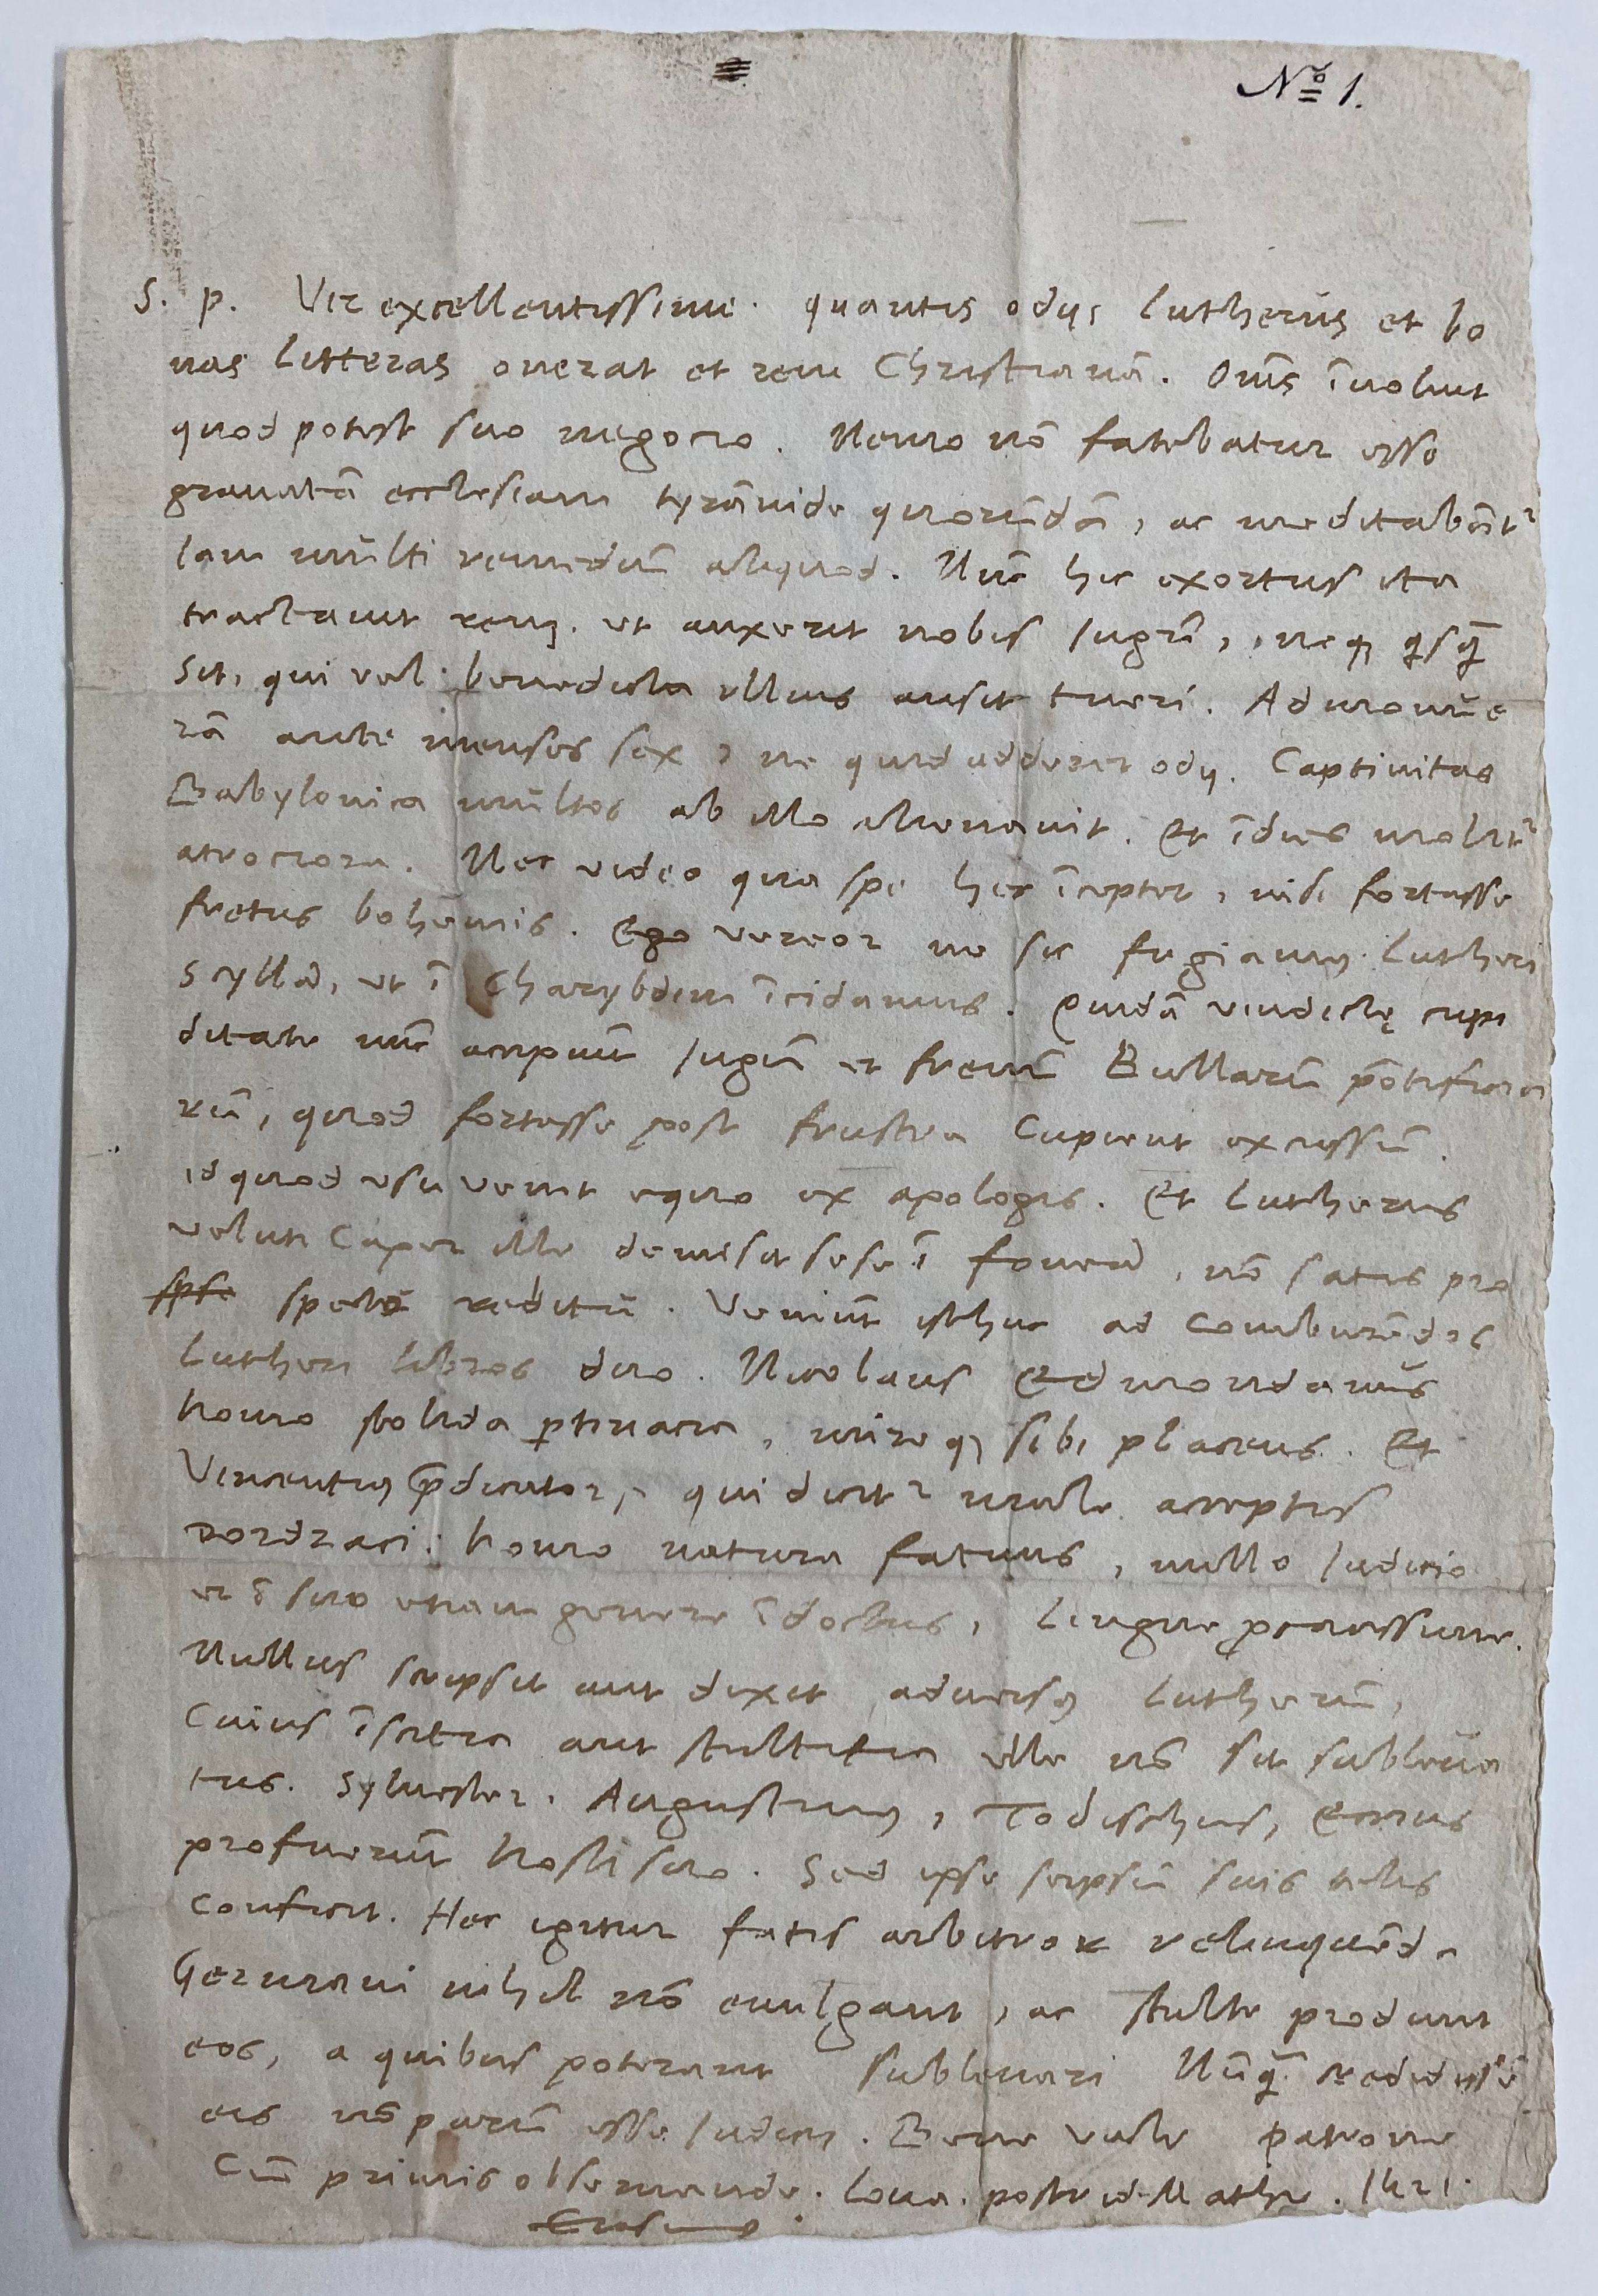 Nº 1.
S. p. Vir excellentissime. quantis odijs Lutherus et bo
nas litteras onerat et rem Christianā. Oīns īvoluit
quod potest suo negocio. Nemo nō fatebatur esse
gravatā ecclesiam tyrānide quorūdā, ac meditabāt᷑
iam multi remediū aliquod. Nūc hic exortus ita
tractavit rem, ut auxerit nobis iugū, neqꝫ qͥsqͣ̄
sit, qui vel benedicta illius ausit tueri. Admonue
rā ante menses sex, ne quid adderet odij. Captivitas
Babylonica multos ab illo alienavit. Et īdies molit᷑
atrociora. Nec video qua spe hec īceptet, nisi fortasse
fretus bohemis. Ego vereor ne sic fugiamꝰ Lutheri
Scyllā, ut ī Charybdim īcidamus. Quidā vindictę cupi
ditate nūc accipiūt iugū et frenū Bullarū pōtificia
rū, quod fortasse post frustra cupient excussū.
id quod usu venit equo ex apologis. Et Lutherus
veluti Caper ille demisit sese ī foveā, nō satis pro
specto reditu. Veniūt isthuc ad comburēdos
Lutheri libros duo. Nicolaus Edmondanus
homo stolida ꝑtinacia, mireqꝫ sibi placens. Et
Vincentiꝰ p̄dicator, qui dicit᷑ male acceptus
Dordraci: homo natura fatuus, nullo iudicio
et ī suo etiam genere īdoctus, Lingue ꝓcacissime.
Nullus scripsit aut dixit adversꝰ Lutherū,
cuius īscitia aut stultitia ille nō sit subleva
tus. Sylvester, Augustinꝰ, Todischus, Eccius
profuerūt hosti suo. Sed ipse seipsū suis telis
conficit. Hec igitur fatis arbitror relinquēda
Germani nihil nō evulgant, ac stulte produnt
eos, a quibus poterant sublevari Nūqͣ̄ credidissē
eis nō parū esse iudicij. Bene vale patrone
cū primis observande. Lova. postrid. Mathie. 1521.
Erasmus.